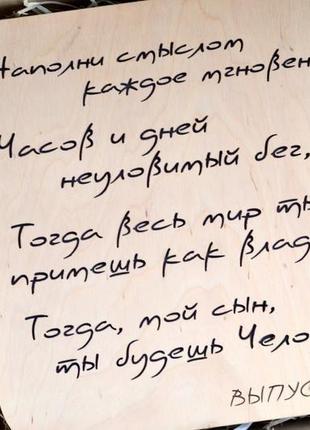 Наполни смыслом
каждое мгновен
Часов и дней
неуловимый бег,
Тогда весь мир ты
примешь как влад
Тогда, мой сын,
ты будешь Чело
ВЫПУС